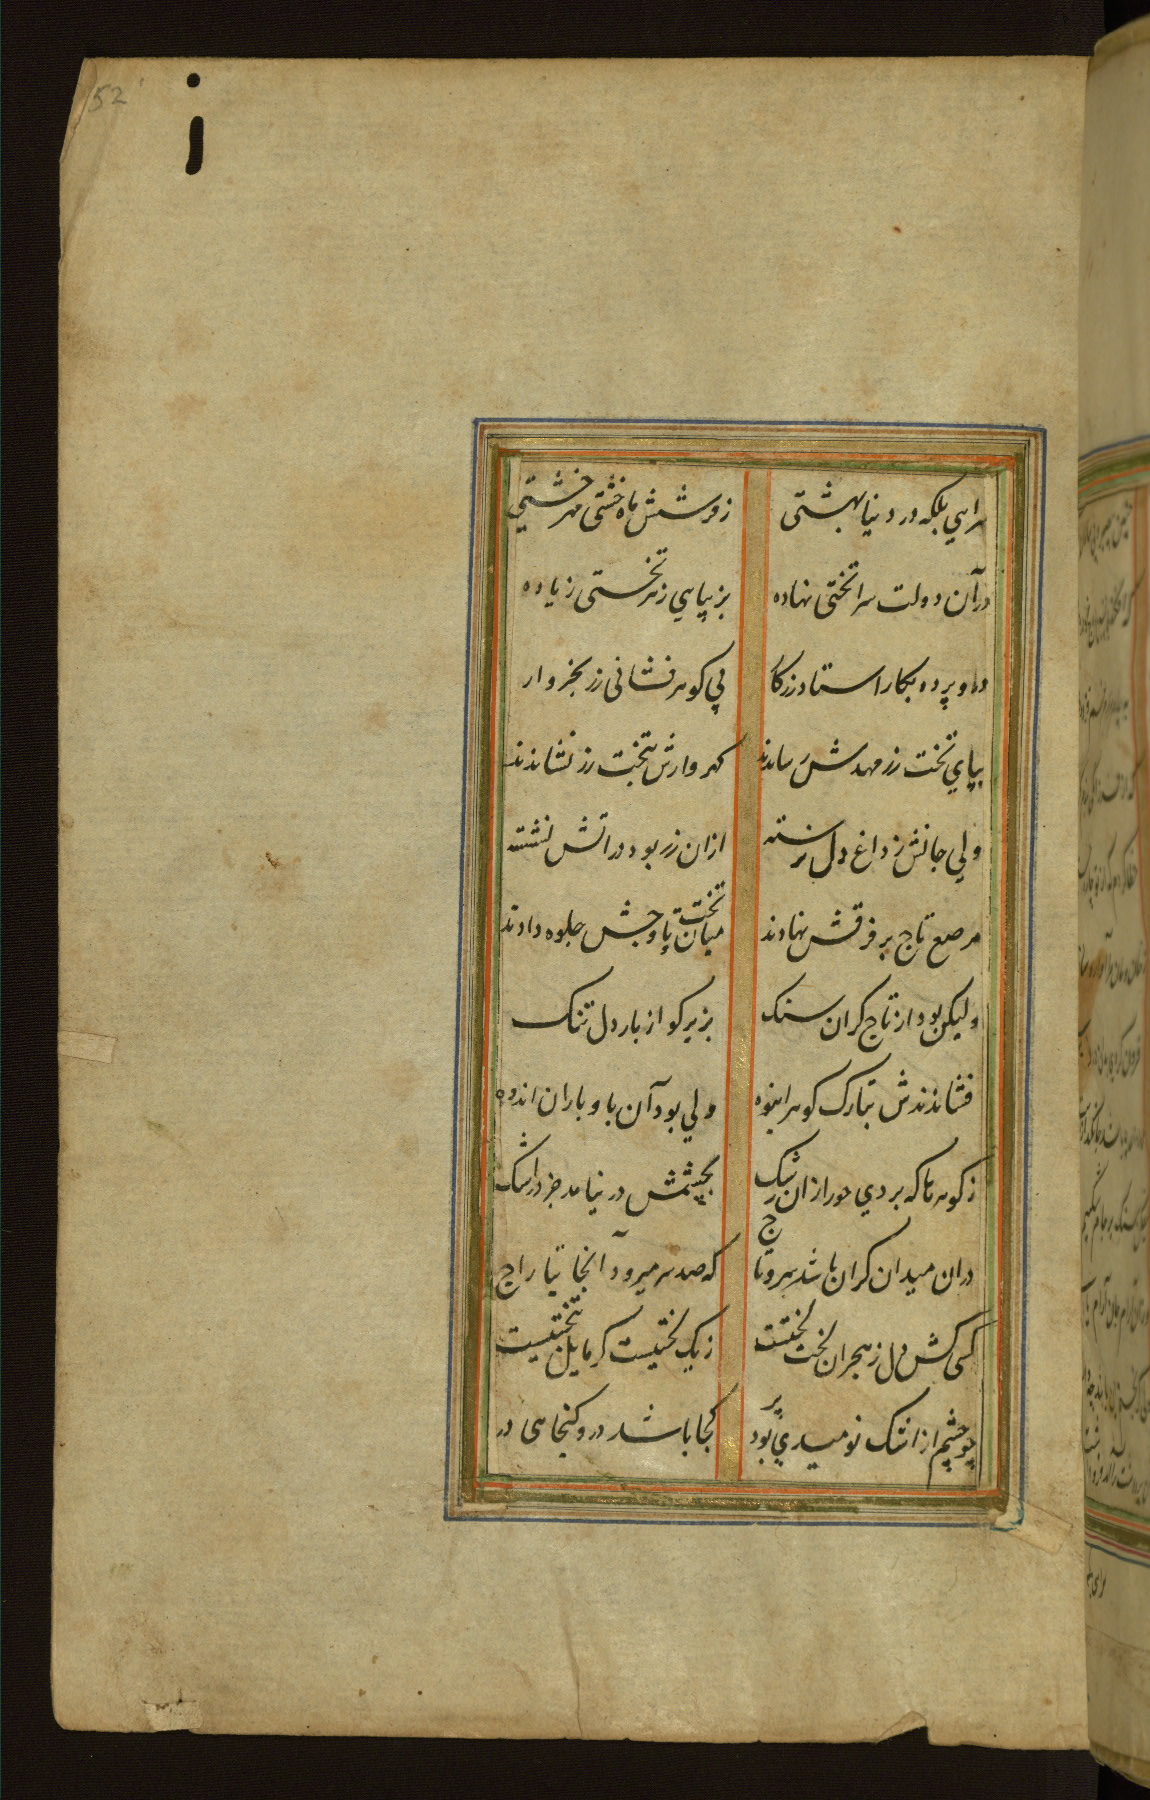 52
سراي بلكه در دنيا بهشتى زفرشش ماه خشتى مهر خشتي
درآن دولت سرا تختى نهاده بزيباي زهر تختى زياده
دراو برده بكار استاد زركار پي كوهر فشانى زر بخروار
بپاي تخت زر مهدش رساندند كهر وارش بتخت زر نشاندند
ولي جانش ز داغ دل نرسته ازان زر بود در اتش نشسته
مرصع تاج بر فرقش نهادند ميان تخت و تاجش جلوه دادند
وليكن بود از تاج كران سنك بزير كوه از بار دل تنك
فشاندندش بتارك كوهر انبوه ولي بود آن باو باران اندوه
ز كوهرها كه بردي حور ازان رشك بچشمش در نيامد جز در اشك
دران ميدان كرا باشد سر و تاج كه صد سر ميرود آنجا بتاراج
كسى كش دل زهجران لخت لختست ز يك لختيست كر مايل بتختست
چو چشم از اشك نوميدي بود پر كجا باشد درو كنجاى در